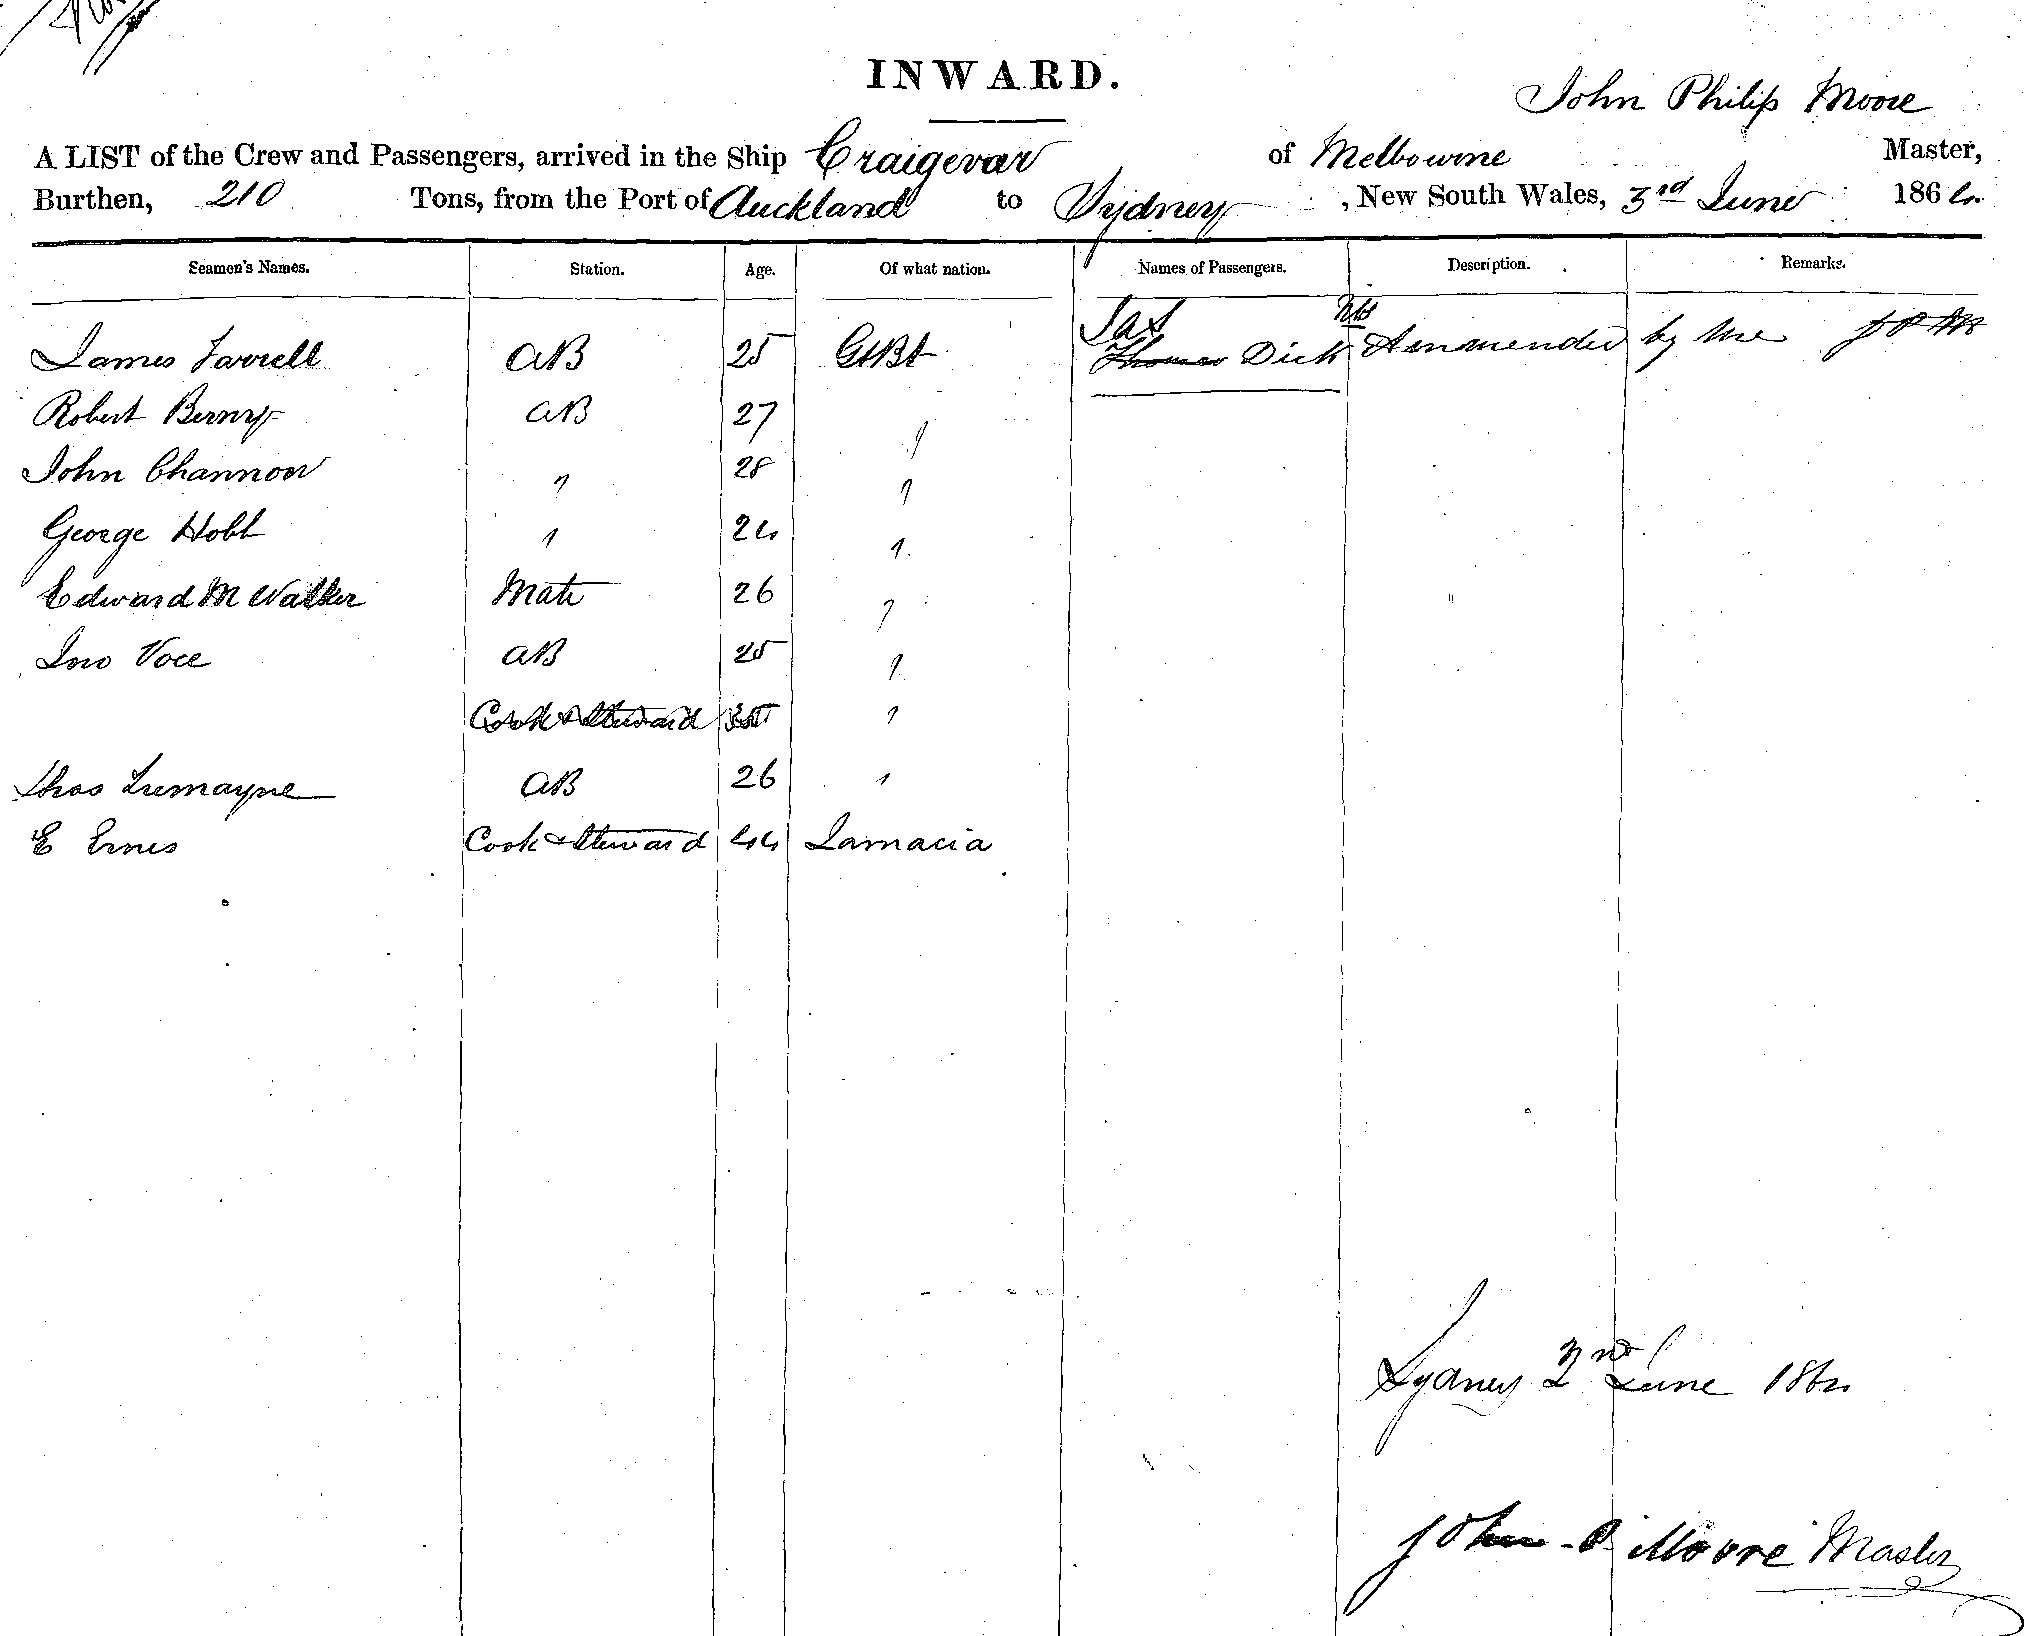 INWARD.
John Philip Moore
A LIST of the Crew and Passengers, arrived in the Ship Craigevar of Melbourne Master,
Burthen, 210 Tons, from the Port of Auckland to Sydney, New South Wales, 3rd June 1864
Seamen's Names. Station. Age. Of what nation. Names of Passengers. Description. Remarks.
Jas
James Farrell AB 25 Gt Bt Thomas Dick Ammended by me J P M
Robert Berry AB 27 "
John Channon " 28 "
George Hobb " 24 "
Edward M Walker Mate 26 "
Jno Voce AB 25 "
Cook & Steward "
Thos Tremayne AB 26 "
E Ernes Cook & Steward 44 Jamacia
Sydney 2nd June 1864
John P Moore Master